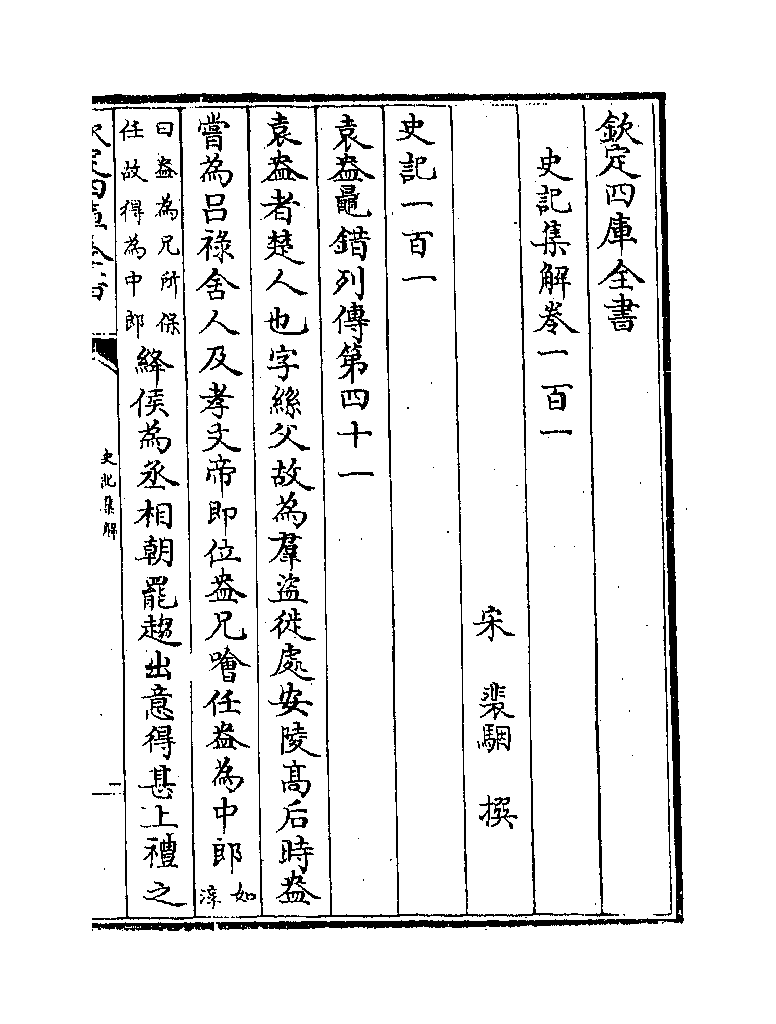 欽定四庫全書
史記集解卷一百一
宋 裴駰 撰
史記一百一
袁盎鼂錯列傳第四十一
袁盎者楚人也字絲父故為羣盜徙處安陵髙后時盎
嘗為呂祿舍人及孝文帝即位盎兄噲任盎為中郎如淳
曰盎為兄所保任故得為中郎絳侯為丞相朝罷趨出意得甚上禮之
欽定四庫全書
史記集解
一